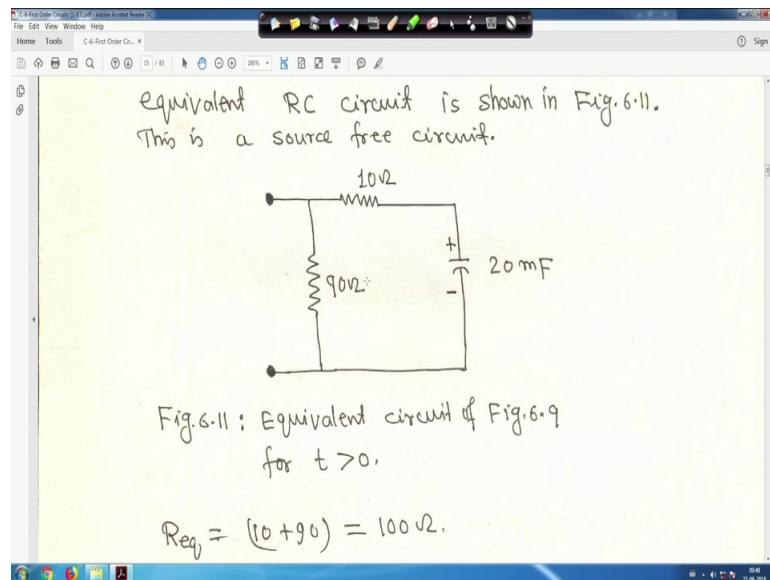 C-6-First Order Circuits [1-83].pdf - Adobe Acrobat Reader DC
File Edit View Window Help
Home Tools C-6-First Order Cir... × Sign
15 / 83 200%
equivalent RC circuit is shown in Fig. 6.11.
This is a source free circuit.
10Ω
90Ω
+
20 mF
-
Fig. 6.11 : Equivalent circuit of Fig. 6.9
for t > 0.
Req = (10 + 90) = 100 Ω.